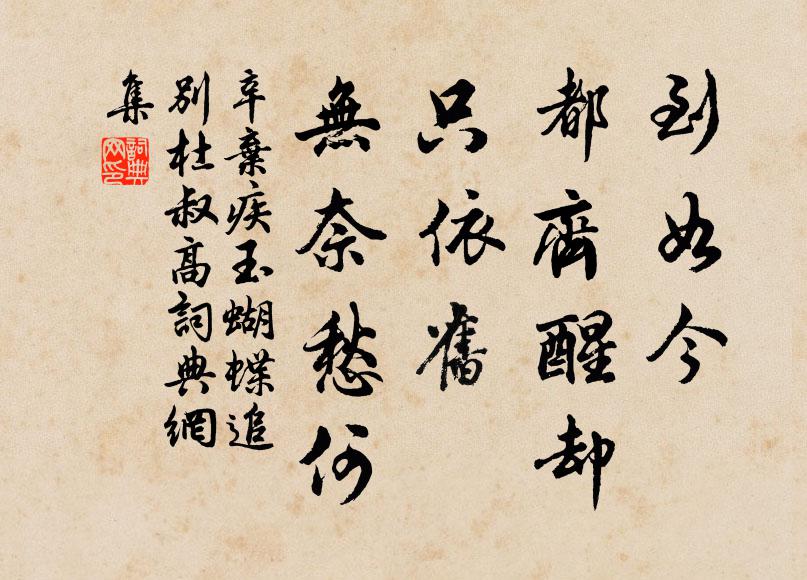 到如今
都齊醒却
只依舊
無奈愁何
辛棄疾玉蝴蝶追
別杜叔高詞典網
集
詞典
网印